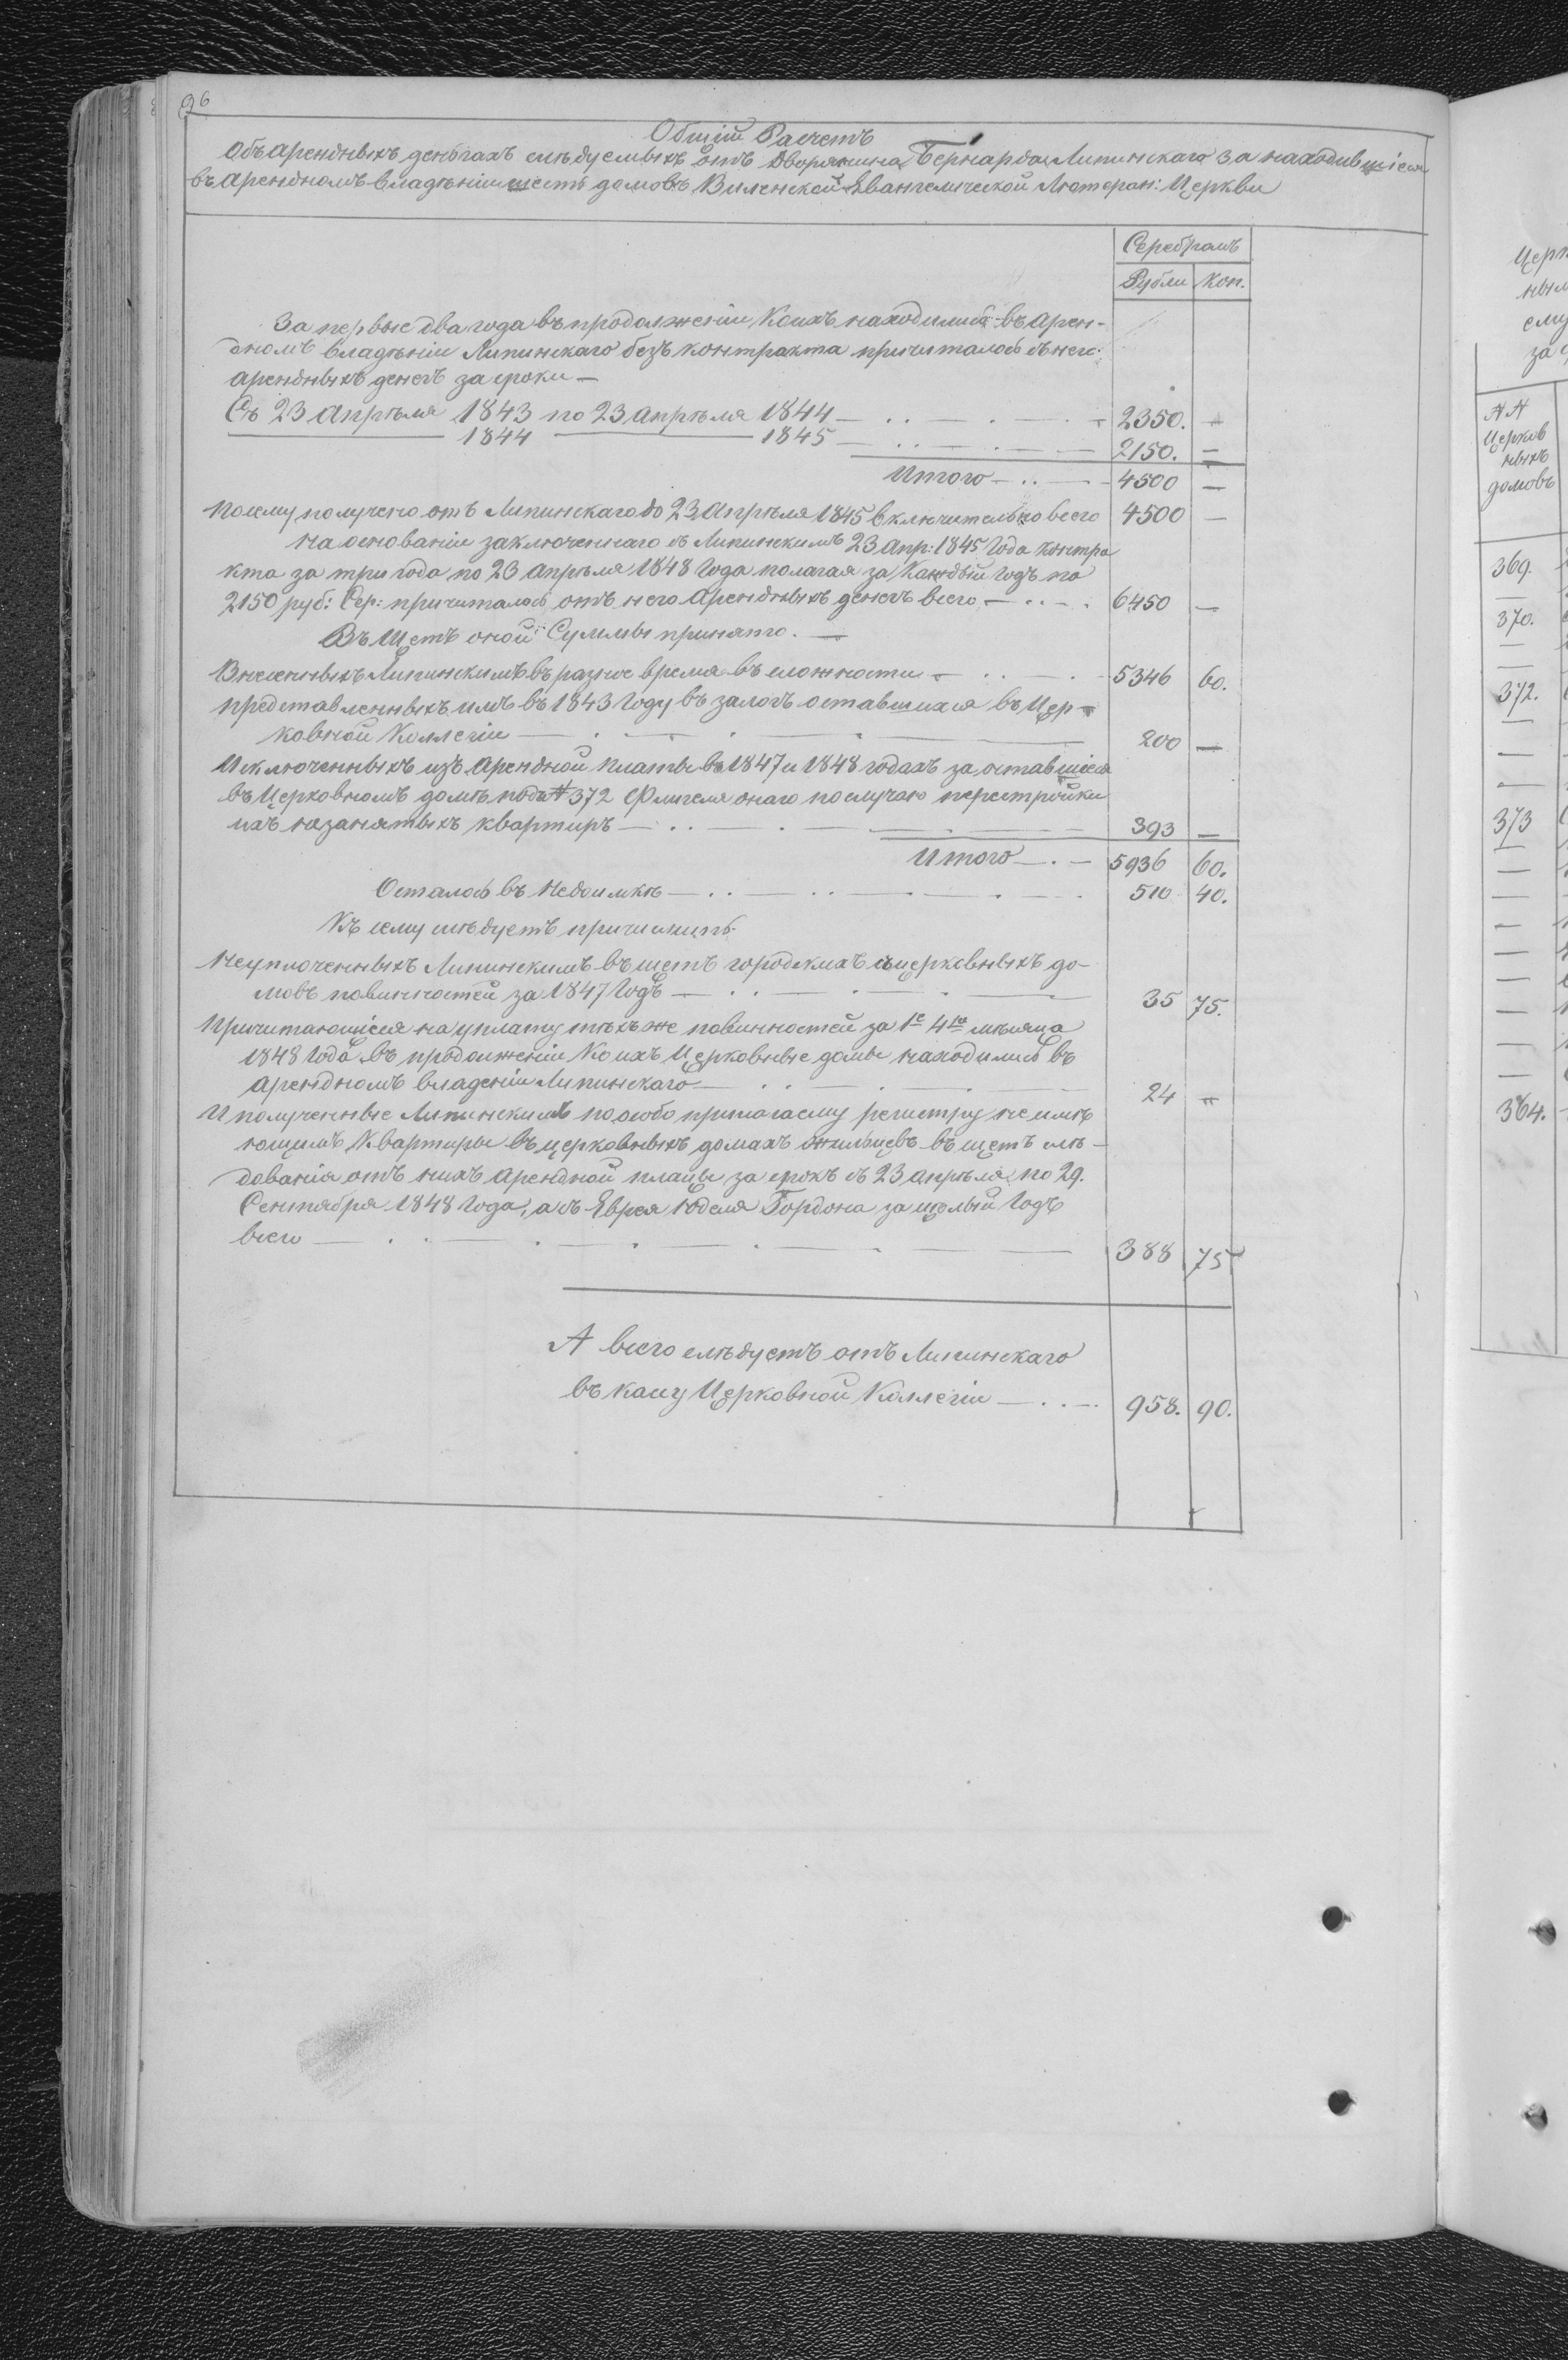 96
Общій Расчетъ
Объ арендныхъ деньгахъ слѣдуемыхъ отъ Дворянина Бернарда Липинскаго за находившіеся
въ арендномъ владѣніи шесть домовъ Виленской Евангелической Лютеран: Церкви
Серебромъ
Рубли Коп.
За первые два года въ продолженіи коихъ находились въ арен-
дномъ владѣніи Липинскаго безъ контракта причиталось съ него:
арендныхъ денегъ за сроки —
Съ 23 апрѣля 1843 по 23 апрѣля 1844 — 2350. —
1844 — 1845 — 2150. —
Итого — 4500 —
Посему получено отъ Липинскаго до 23 апрѣля 1845 включительно всего 4500 —
на основаніи заключеннаго съ Липинскимъ 23 апр: 1845 года контра
кта за три года по 23 апрѣля 1848 года полагая за каждый годъ по
2150 руб: Сер: причиталось отъ него арендныхъ денегъ всего — 6450 —
Въ щетъ оной Суммы принято. —
Внесенныхъ Липинскимъ въ разное время въ сложности — 5346 60.
представленныхъ имъ въ 1843 году въ залогъ оставшихся въ Цер-
ковной Коллегіи — 200 —
Исключенныхъ изъ арендной платы въ 1847 и 1848 годахъ за оставшіеся
въ Церковномъ домѣ подъ № 372 Флигеля онаго по случаю перестройки
ихъ незанятыхъ квартиръ — 393 —
Итого — 5936 60.
Осталось въ недоимкѣ — 510 40.
Къ сему слѣдуетъ причислить
Неуплоченныхъ Липинскимъ въ щетъ городскихъ съ церковныхъ до-
мовъ повинностей за 1847 годъ — 35 75.
Причитающіеся на уплату тѣхъ же повинностей за 1е 4ре мѣсяца
1848 года въ продолженіи коихъ Церковные домы находились въ
арендномъ владеніи Липинскаго — 24 —
И полученные Липинскимъ по особо прилагаему регистру не имѣ
ющимъ квартиры въ церковныхъ домахъ жильцевъ въ щетъ слѣ-
дованія отъ нихъ арендной плацы за срокъ съ 23 апрѣля по 29.
Сентября 1848 года, а съ Еврея Юделя Гордона за целый годъ
всего — 388 75
А всего слѣдуетъ отъ Липинскаго
въ касу Церковной Коллегіи — 958. 90.
№№
Церков
ныхъ
домовъ
369.
370.
372.
373
364.